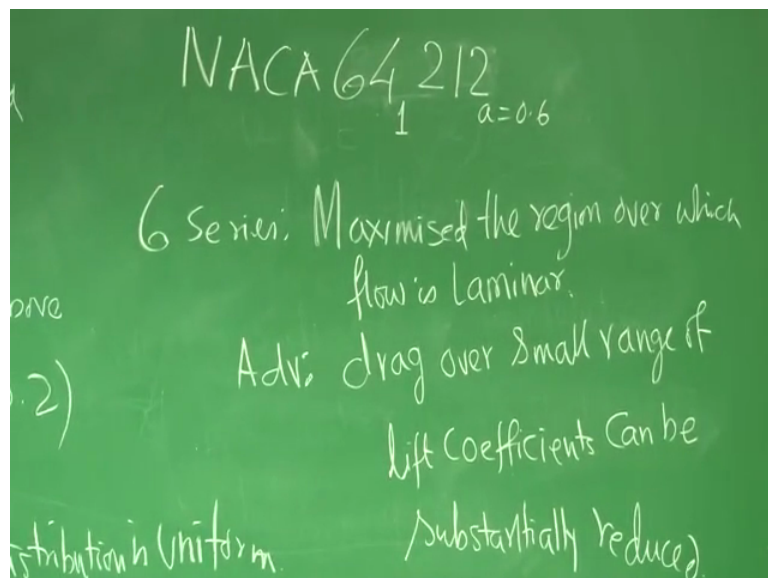 NACA 64 212
1 a=0.6
6 Series: Maximised the region over which
flow is Laminar.
ove
Adv: drag over small range of
.2)
lift coefficients Can be
substantially reduced
stribution is Uniform.